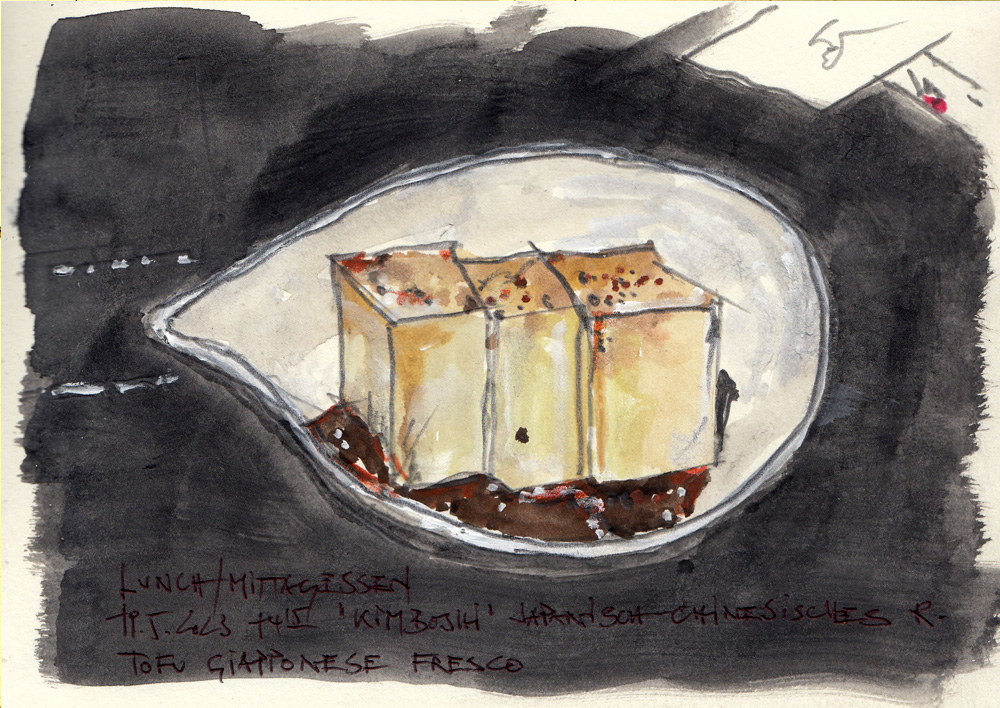 LUNCH/MITTAGESSEN
'KIMBOSHI' JAPANISCH-CHINESISCHES R.
TOFU GIAPPONESE FRESCO